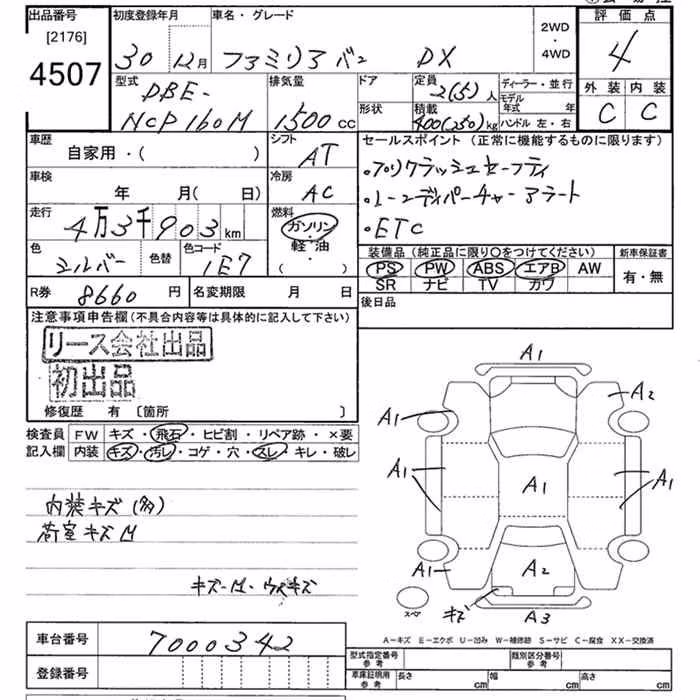 出品番号 初度登録年月 車名・グレード 2WD・4WD 評価点
[2176] 30年12月 ファミリアバン DX 4
4507 型式 排気量 ドア 定員 ディーラー・並行 外装 内装
DBE- 2(5)人 モデル年式 年 C C
NCP160M 1500cc 形状 積載 400(250)kg ハンドル 左・右
車歴 シフト セールスポイント(正常に機能するものに限ります)
自家用・( ) AT ・プリクラッシュセーフティ
車検 冷房 ・レーンディパーチャーアラート
年 月( 日) AC ・ETC
走行 4万3千903km 燃料 ガソリン・軽油 ( )
色 シルバー 色替 色コード 1E7
装備品(純正品に限り○をつけてください) 新車保証書
PS PW ABS エアB AW 有・無
SR ナビ TV カワ
R券 8660円 名変期限 月 日 後日品
注意事項申告欄(不具合内容等は具体的に記入して下さい)
リース会社出品
初出品
修復歴 有 〔箇所 〕
検査員 FW キズ・飛石・ヒビ割・リペア跡・×要
記入欄 内装 キズ・汚レ・コゲ・穴・スレ・キレ・破レ
A1
A1 A2
A1 A1 A1
A1 A2
キズ A3
スペア
内装キズ(多)
荷室キズM
A-キズ E-エクボ U-凹み W-補修跡 S-サビ C-腐食 XX-交換済
車台番号 7000342
登録番号
型式指定番号 参考 類別区分番号 参考
車庫証明用 参考 長さ cm 幅 cm 高さ cm